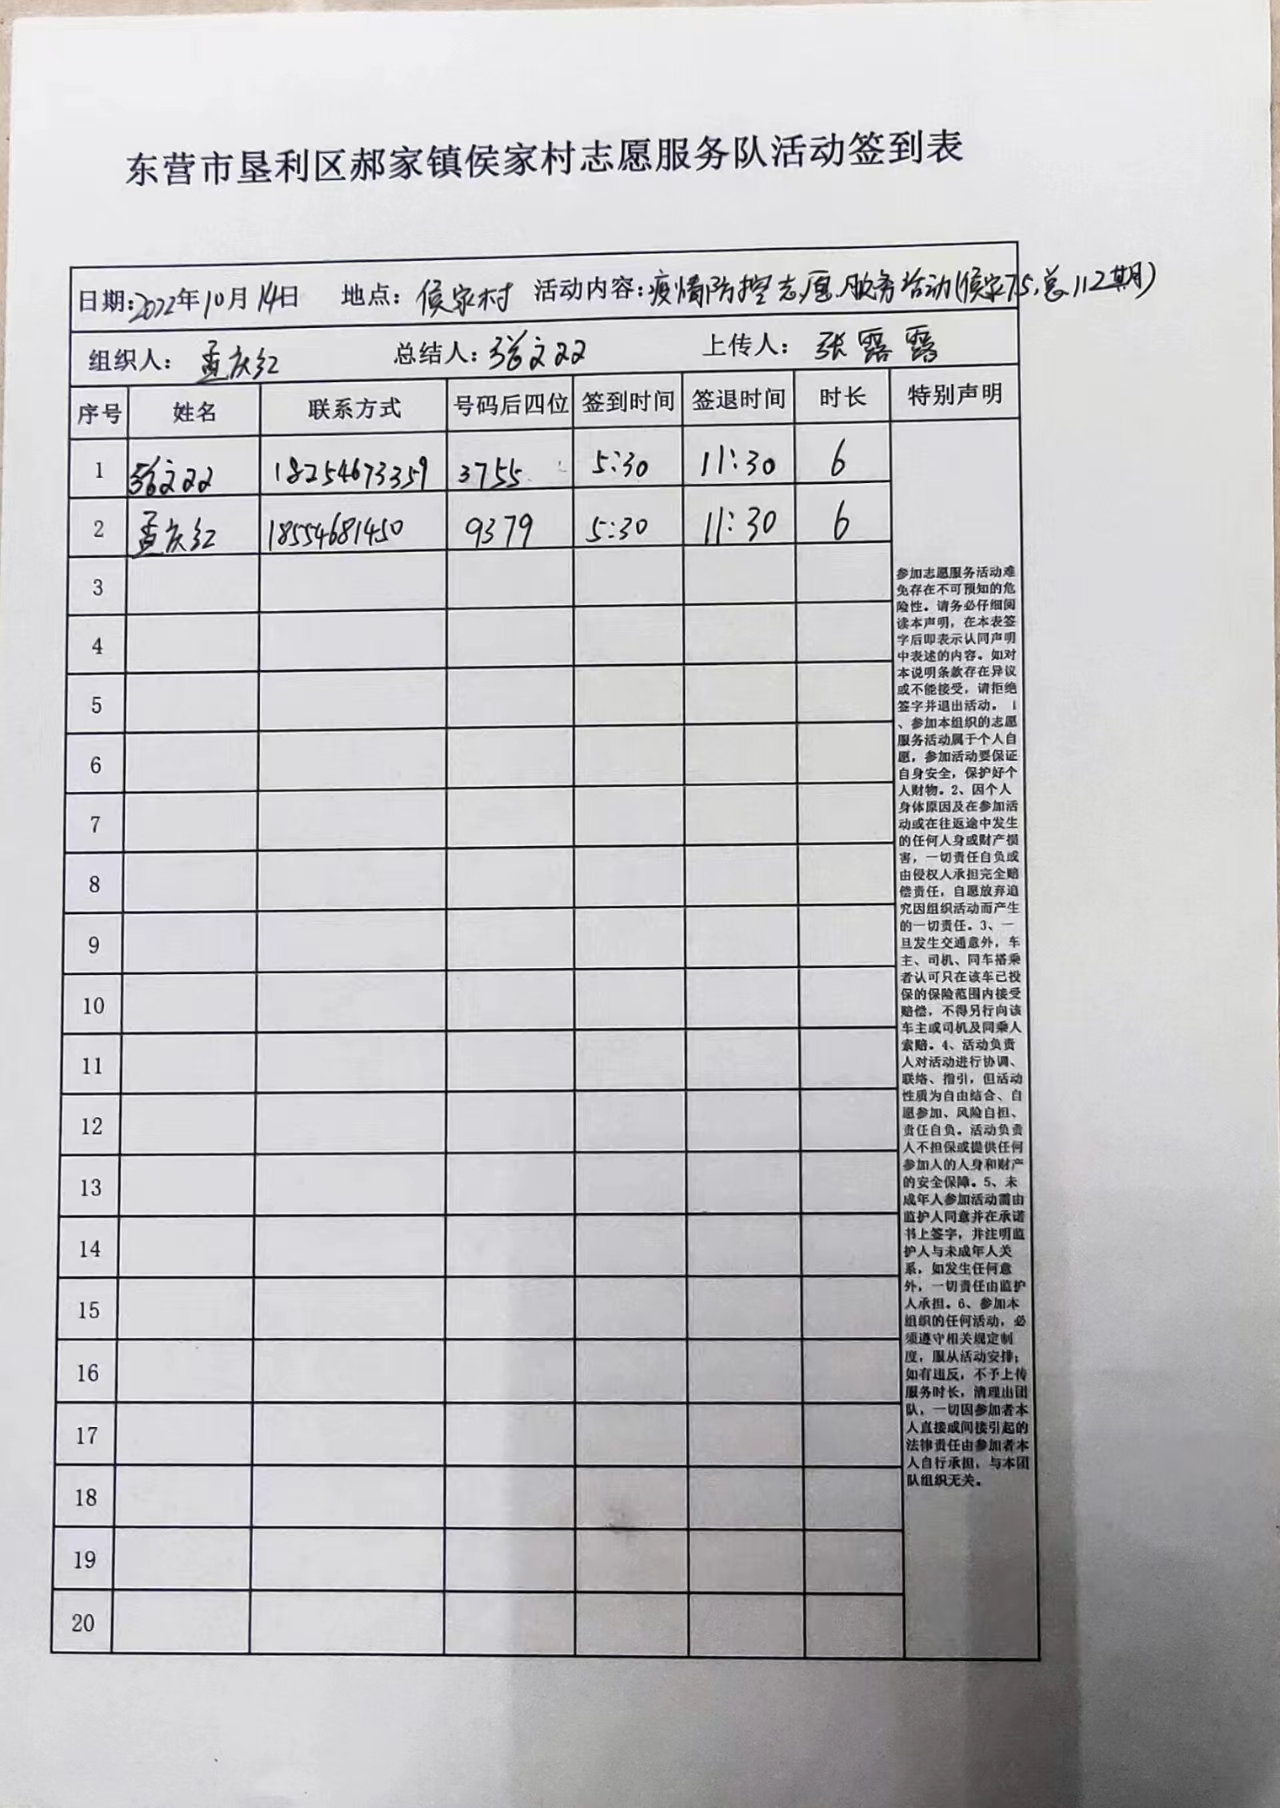 东营市垦利区郝家镇侯家村志愿服务队活动签到表
日期:2022年10月14日 地点:侯家村 活动内容:疫情防控志愿服务活动(侯家75,总112期)
组织人:孟庆红 总结人: 上传人:张露露
序号 姓名 联系方式 号码后四位 签到时间 签退时间 时长 特别声明
1 18254673359 3755 5:30 11:30 6
2 孟庆红 18554681450 9379 5:30 11:30 6
3
4
5
6
7
8
9
10
11
12
13
14
15
16
17
18
19
20
参加志愿服务活动难
免存在不可预知的危
险性。请务必仔细阅
读本声明,在本表签
字后即表示认同声明
中表述的内容。如对
本说明条款存在异议
或不能接受,请拒绝
签字并退出活动。1
、参加本组织的志愿
服务活动属于个人自
愿,参加活动要保证
自身安全,保护好个
人财物。2、因个人
身体原因及在参加活
动或在往返途中发生
的任何人身或财产损
害,一切责任自负或
由侵权人承担完全赔
偿责任,自愿放弃追
究因组织活动而产生
的一切责任。3、一
旦发生交通意外,车
主、司机、同车搭乘
者认可只在该车已投
保的保险范围内接受
赔偿,不得另行向该
车主或司机及同乘人
索赔。4、活动负责
人对活动进行协调、
联络、指引,但活动
性质为自由结合、自
愿参加、风险自担、
责任自负。活动负责
人不担保或提供任何
参加人的人身和财产
的安全保障。5、未
成年人参加活动需由
监护人同意并在承诺
书上签字,并注明监
护人与未成年人关
系,如发生任何意
外,一切责任由监护
人承担。6、参加本
组织的任何活动,必
须遵守相关规定制
度,服从活动安排;
如有违反,不予上传
服务时长,清理出团
队,一切因参加者本
人直接或间接引起的
法律责任由参加者本
人自行承担,与本团
队组织无关。